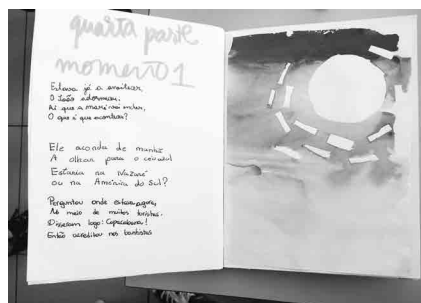 quarta parte
momento 1
Estava já a anoitecer,
O João adormeceu,
Ai que a maré vai encher,
O que é que aconteceu?
Ele acorda de manhã
A olhar para o céu azul
Estaria na Nazaré
ou na América do Sul?
Perguntou onde estava agora,
Ao meio de muitos turistas.
Disseram logo: Copacabana!
Então acreditou nos banhistas